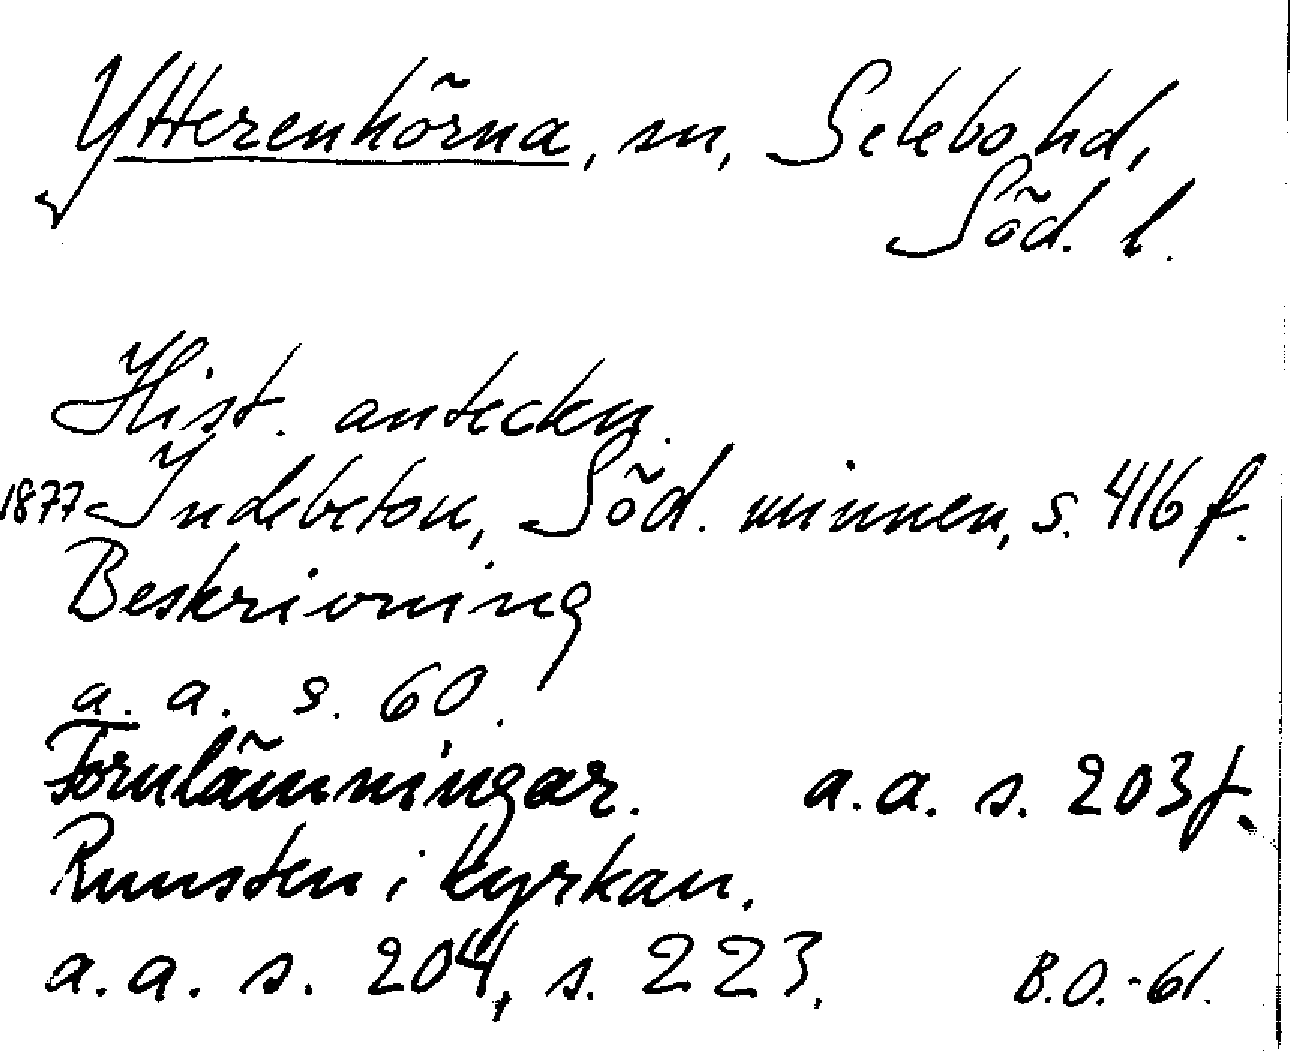 Ytterenhörna, sn, Selebo hd,
Söd. l.
Hist. anteckn.
1877 Indebetou, Söd. minnen, s. 416 f.
Beskrivning
a. a. s. 60.
Fornlämningar. a. a. s. 203 f.
Runsten i kyrkan.
a. a. s. 204, s. 223.
B.O.-61.